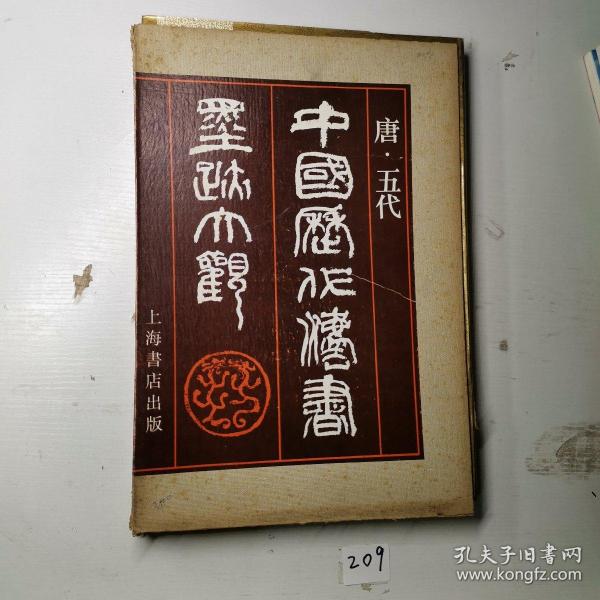 唐·五代
中國歷代灋書
墨迹大觀
上海書店出版
209
孔夫子旧书网
www.kongfz.com